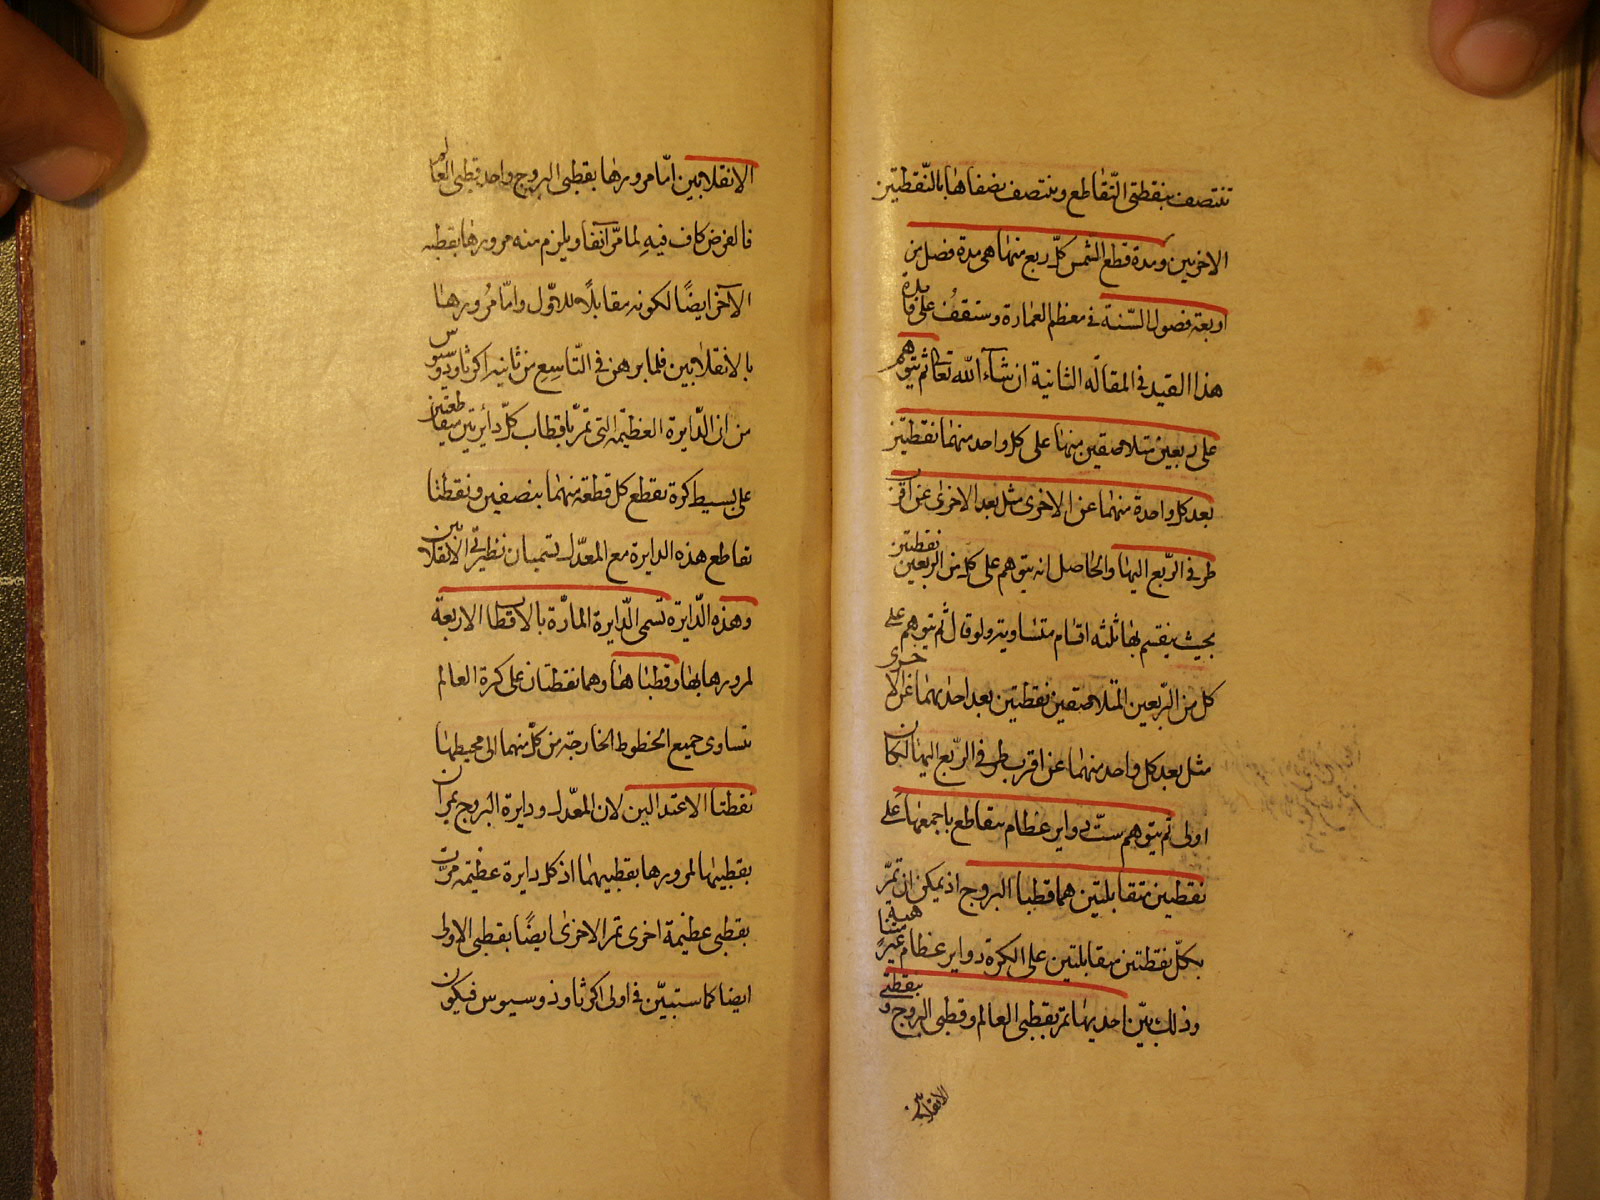 تنتصف بنقطتي التّقاطع وينتصف نصفاها بالنّقطتين
الاخريين ومدة قطع الشمس كلّ ربع منها هي مدة فصل من
اربعة فصول السّنة في معظم العمارة وستقف على فايدة
هذا القيد في المقاله الثانية ان شآء الله تعالى ثم يتوهم
على ربعين متلاصقين منها على كل واحد منهما نقطتين
بعد كل واحدة منهما عن الاخرى مثل بعد الاخرى عن اقرب
طرفي الرّبع اليها والحاصل انه يتوهم على كل من الربعين نقطتين
بحيث ينقسم بها ثلثه اقسام متساوية ولو قال ثم يتوهم على
كل من الرّبعين المتلاصقين نقطتين بعد احديهما عن الاخرى
مثل بعد كل واحد منهما عن اقرب طرفي الرّبع اليها لكان
اولى ثم يتوهم ستّ دواير عظام يتقاطع باجمعها على
نقطتين متقابلتين هما قطبا البروج اذ يمكن ان تمرّ
بكلّ نقطتين متقابلتين على الكرة دواير عظام غير متناهية
وذلك بيّن احديها تمرّ بقطبي العالم وقطبي البروج وبنقطتي
الانقلابين
الانقلابين امّا مرورها بقطبي البروج واحد قطبي العالم
فالفرض كاف فيه لما مرّ آنفا ويلزم منه مرورها بقطبه
الآخر ايضًا لكونه مقابلًا للاوّل وامّا مرورها
بالانقلابين فلما برهن في التّاسع من ثانيه اكرثاوذوسيوس
من ان الدّايرة العظيمه التي تمرّ باقطاب كلّ دايرتين متقاطعتين
على بسيط كرة تقطع كل قطعة منهما بنصفين ونقطتا
تقاطع هذه الدايرة مع المعدّل تسميان نظيرتي الانقلابين
وهذه الدّايرة تسمى الدّايرة المارّة بالاقطاب الاربعة
لمرورها بها وقطباها وهما نقطتان على كرة العالم
تساوى جميع الخطوط الخارجه من كلّ منهما الى محيطها
نقطتا الاعتدالين لان المعدّل ودايرة البروج تمران
بقطبيها لمرورها بقطبيهما اذ كل دايرة عظيمه مرّت
بقطبي عظيمة اخرى تمر الاخرى ايضًا بقطبي الاولى
ايضا كما ستبيّن في اولى اكرثاوذوسيوس فيكون